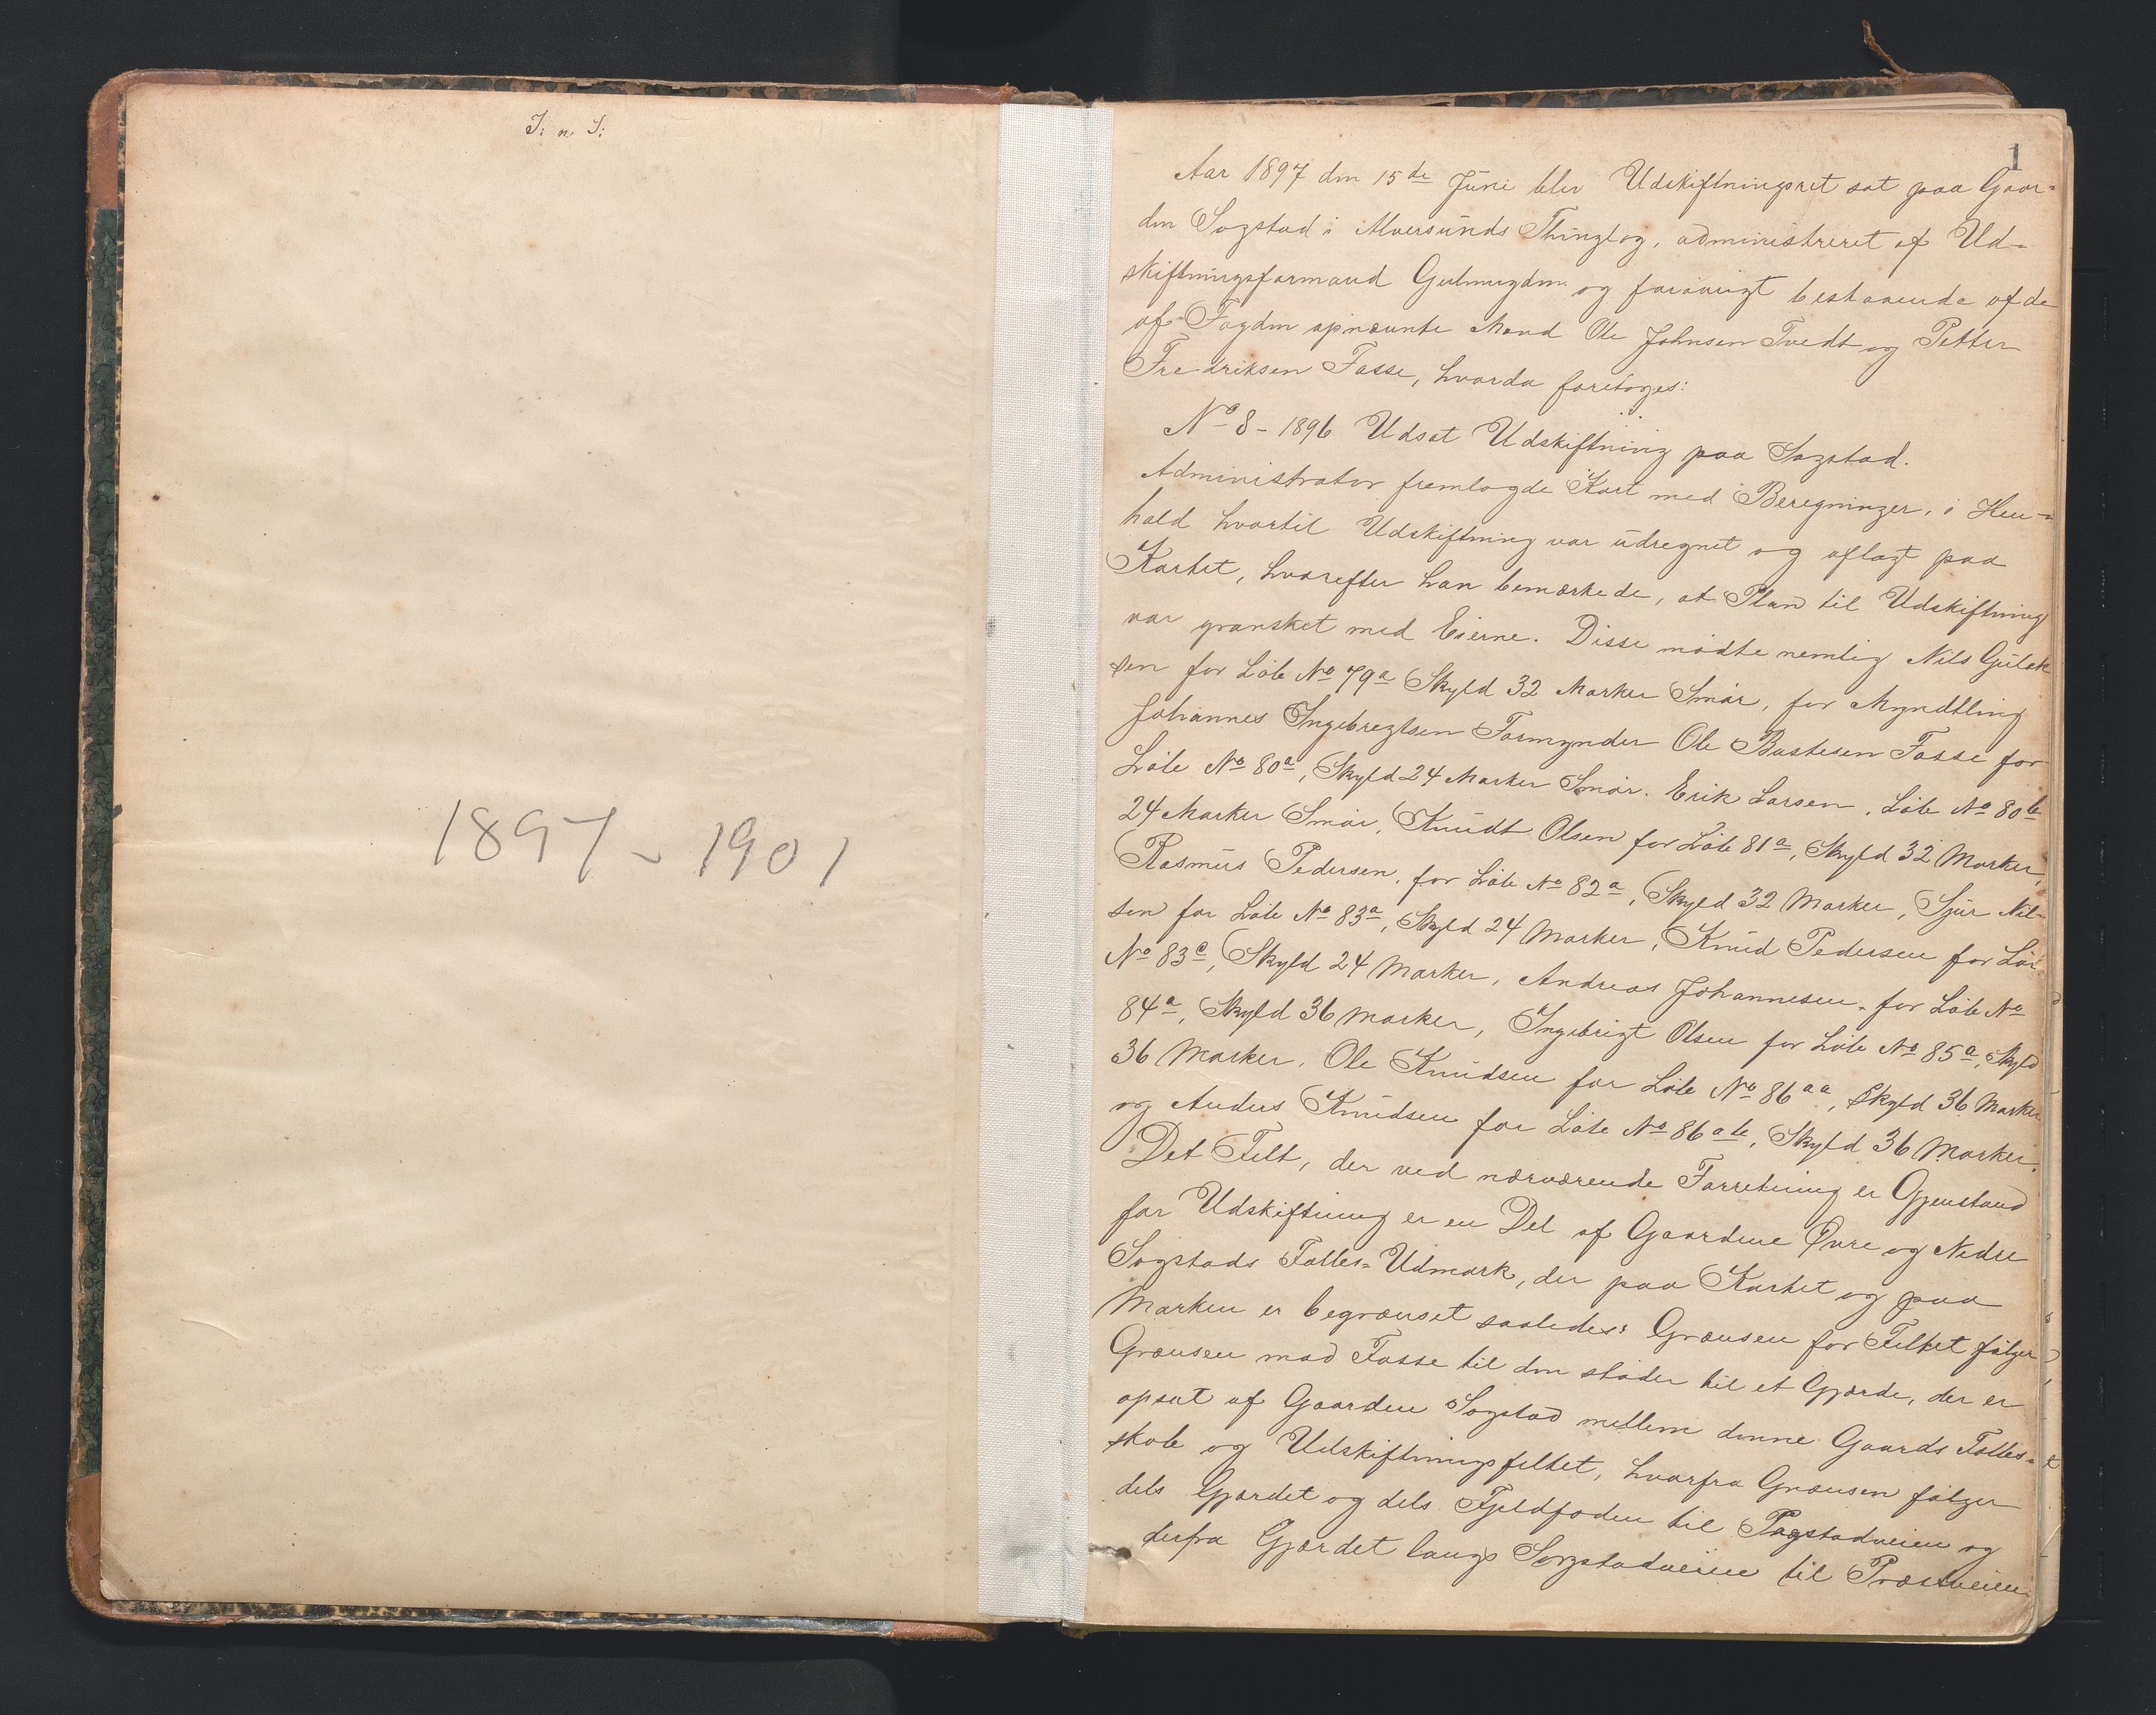 J: n S:
1897 - 1901
1
Aar 1897 den 15de Juni blev Udskiftningsret sat paa Gaar=
den Sogstad i Alversunds Thinglog, administreret af Ud-
skiftningsformand og forøvrigt bestaaende af de
af Fogden opnævnte Mænd Ole Johnsen Tvedt og Petter
Fredriksen Fosse, hvorda foretoges:
No 8 - 1896 Udsat Udskiftning paa Sogstad.
Administrator fremlagde Kart med Beregninger, i Hen-
hold hvortil Udskiftning var udregnet og aflagt paa
Kartet, hvorefter han bemærkede, at Plan til Udskiftning
var gransket med Eierne. Disse mødte nemlig Nils Gulak
sen for Løbe No 79a Skyld 32 Marker Smør, for Myndtling
Johannes Ingebregtsen Formynder Ole Bastesen Fosse for
Løbe No 80a, Skyld 24 Marker Smør. Erik Larsen, Løbe No 80b
24 Marker Smør, Knudt Olsen for Løbe 81a, Skyld 32 Marker,
Rasmus Pedersen, for Løbe No 82a, Skyld 32 Marker, Sjur Nil-
sen for Løbe No 83a, Skyld 24 Marker, Knud Pedersen for Lø:
No 83c, Skyld 24 Marker, Andreas Johannesen for Løbe No
84a, Skyld 36 Marker, Ingebrigt Olsen for Løbe No 85a, Skyld
36 Marker, Ole Knudsen for Løbe No 86aa, Skyld 36 Marker
og Anders Knudsen for Løbe No 86ab, Skyld 36 Marker.
Det Felt, der ved nærværende Forretning er Gjenstand
for Udskiftning er en Del af Gaardene Øvre og Nedre
Sogstads Fælles-Udmark, der paa Kartet og paa
Marken er begrænset saaledes: Grænsen for Feltet følger
Grænsen mod Fosse til den støder til et Gjærde, der er
opsat af Gaarden Sogstad mellem denne Gaards Fælles-
skole og Udskiftningsfeltet, hvorfra Grænsen følger
dels Gjærdet og dels Fjeldfoden til Sogstadveien og
derfra Gjærdet langs Sogstadveien til Præsteveien